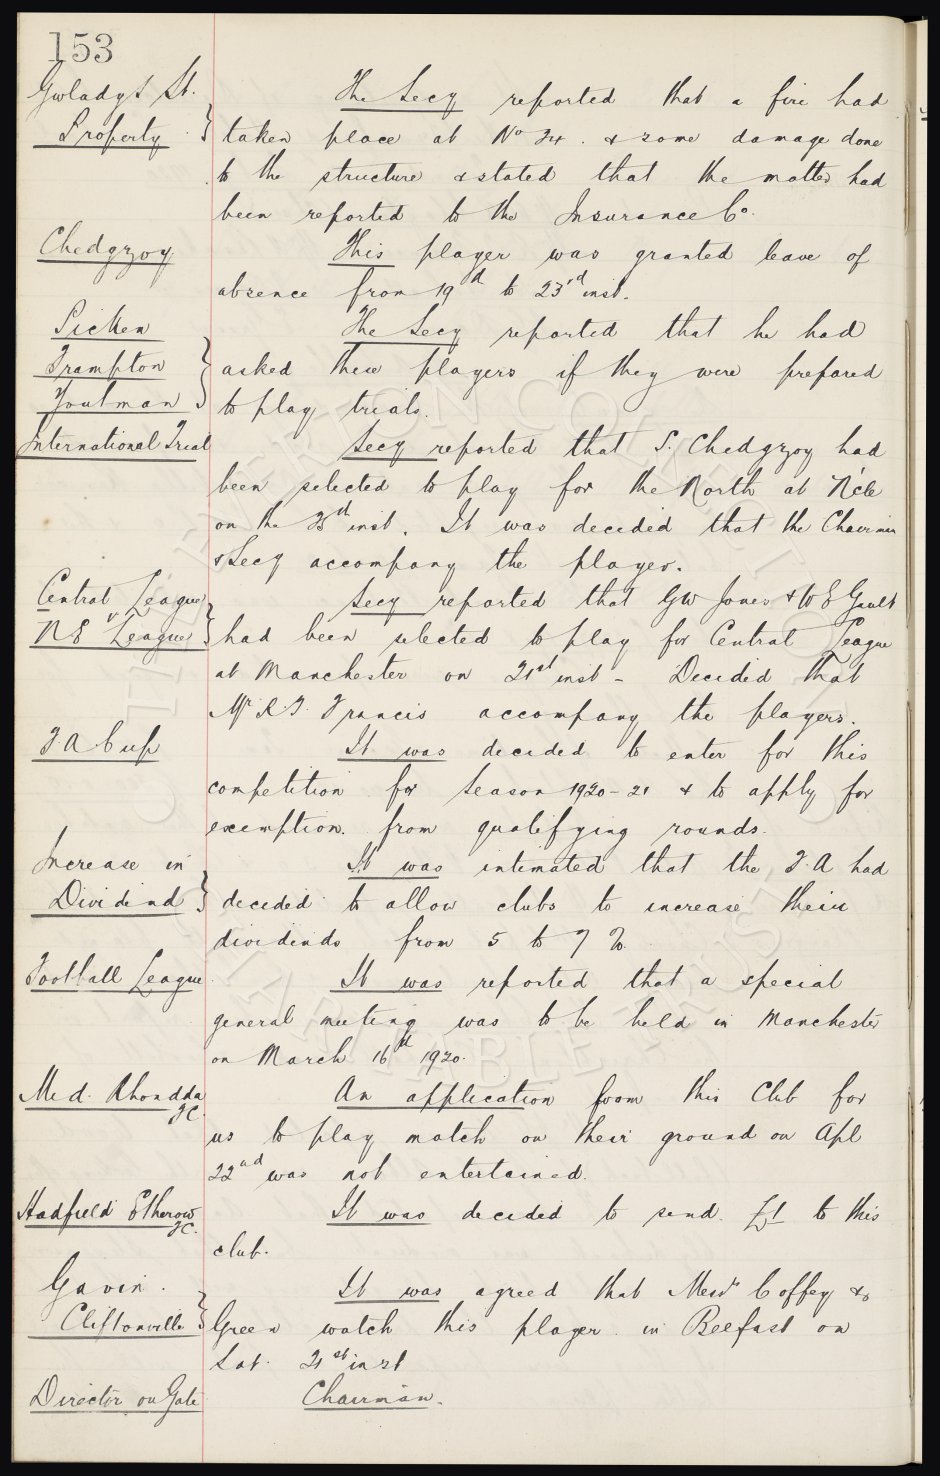 153
Gwladys St.
Property
The Secy reported that a fire had
taken place at No 34. & some damage done
to the structure & stated that the matter had
been reported to the Insurance Co.
Chedgzoy
This player was granted leave of
absence from 19th to 23rd inst.
Picken
Frampton
Youlman
The Secy reported that he had
asked these players if they were prepared
to play trials.
International Trial
Secy reported that S. Chedgzoy had
been selected to play for the North at N'cle
on the inst. It was decided that the Chairman
& Secy accompany the player.
Central League
v
N E League
Secy reported that GW Jones & W E Gault
had been selected to play for Central League
at Manchester on 21st inst - Decided that
Mr R.T. Francis accompany the players.
F A Cup
It was decided to enter for this
competition for season 1920-21 & to apply for
exemption from qualifying rounds.
Increase in
Dividend
It was intimated that the F.A had
decided to allow clubs to increase their
dividends from 5 to 7 %
Football League
It was reported that a special
general meeting was to be held in Manchester
on March 16th 1920.
Mid. Rhondda
FC.
An application from this Club for
us to play match on their ground on Apl
22nd was not entertained.
Hadfield Etherow
FC.
It was decided to send £1 to this
club.
Gavin
Cliftonville
It was agreed that Messrs Coffey &
Green watch this player in Belfast on
Sat. 21st inst
Director on Gate
Chairman.
THE EVERTON COLLECTION
CHARITABLE TRUST